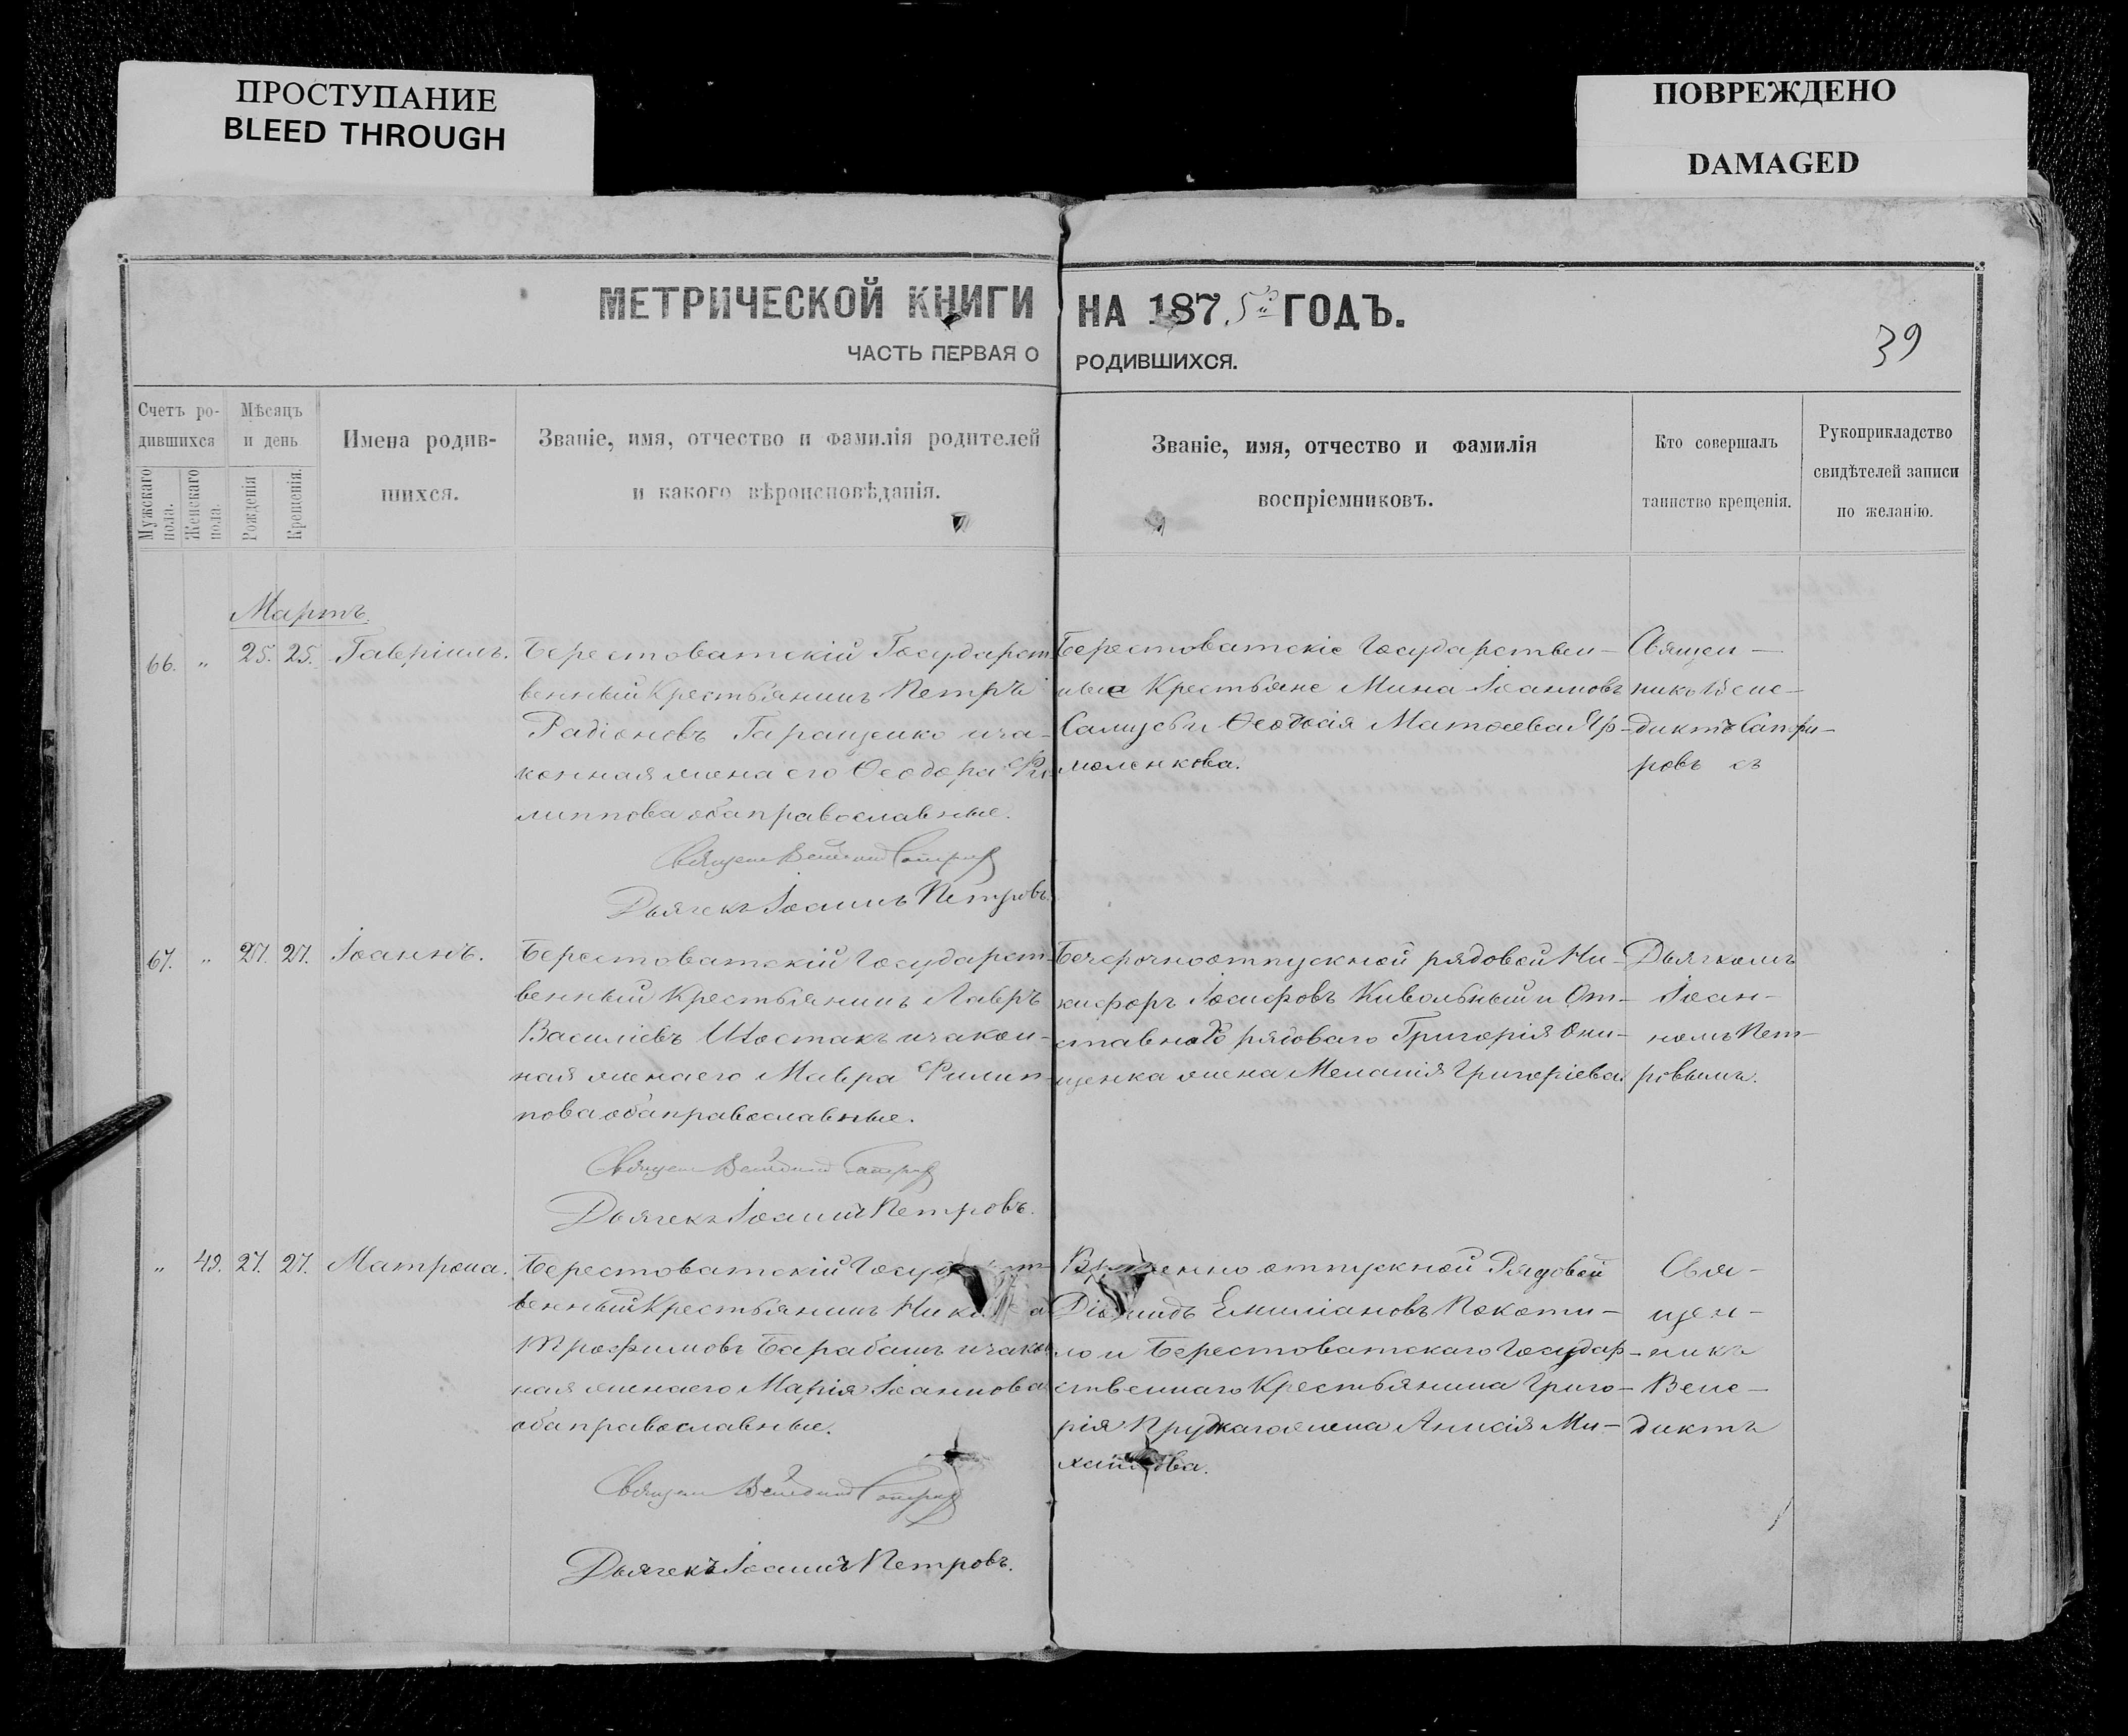 ПРОСТУПАНИЕ
BLEED THROUGH
ПОВРЕЖДЕНО
DAMAGED
МЕТРИЧЕСКОЙ КНИГИ НА 1875й ГОДЪ.
39
ЧАСТЬ ПЕРВАЯ О РОДИВШИХСЯ.
Счетъ ро-
дившихся
Мужскаго пола.
Женскаго пола.
Мѣсяцъ
и день
Рожденія
Крещенія.
Имена родив-
шихся.
Званіе, имя, отчество и фамилія родителей
и какого вѣроисповѣданія.
Званіе, имя, отчество и фамилія
воспріемниковъ.
Кто совершалъ
таинство крещенія.
Рукоприкладство
свидѣтелей записи
по желанію.
Мартъ.
66. " 25. 25. Гавріилъ.
Берестоватскій Государст-
венный Крестьянинъ Петръ
Радіоновъ Геращенко и за-
конная жена его Ѳеодора Фи-
липпова оба православные.
Священ Венедикт
Дьячекъ Іоаннъ Петровъ.
Берестоватскіе Государствен-
ные Крестьяне Мина Іоанновъ
Самусь и Ѳеодосія Матѳеева Яр-
моленкова.
Священ-
никъ Вене-
диктъ
ровъ съ
67. " 27. 27. Іоаннъ.
Берестоватскій Государст-
венный Крестьянинъ Лавръ
Василіевъ Шостакъ и закон-
ная жена его Мавра Филип-
пова оба православные.
Священ Венедикт
Дьячекъ Іоаннъ Петровъ.
Безсрочноотпускной рядовой Ни-
кифоръ Іосифовъ Кивольный и От-
ставного рядоваго Григорія Они-
щенка жена Меланія Григоріева.
Дьячкомъ
Іоан-
номъ Пет-
ровымъ.
" 49. 27. 27. Матрона.
Берестоватскій
венный Крестьянинъ
Трофимовъ Барабашъ и закон-
ная жена его Марія Іоаннова
оба православные.
Священ Венедикт
Дьячекъ Іоаннъ Петровъ.
Временно отпускной Рядовой
Діомидъ Емиліановъ Покоти-
ло и Берестоватскаго Государ-
ственнаго Крестьянина Григо-
рія жена Анисія Ми-
хайлова.
Свя-
щен-
никъ
Вене-
диктъ